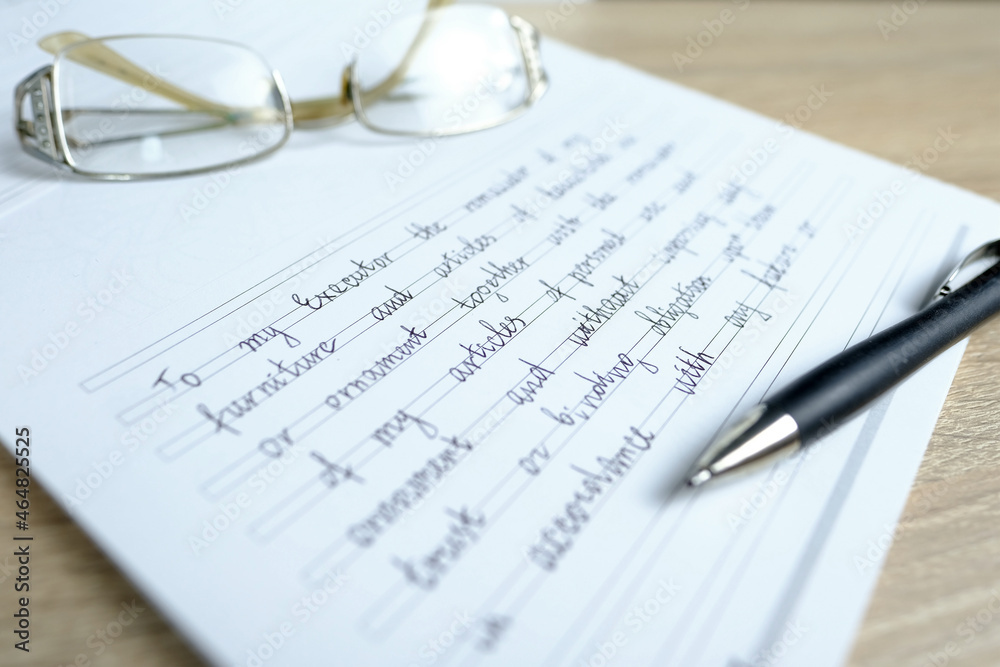 To my Executor the remainder of my
furniture and articles of
or ornament together with the
of my articles of personal use and
ornament and without imposing any
trust or binding obligation
accordance with any
in
Adobe Stock | #464825525